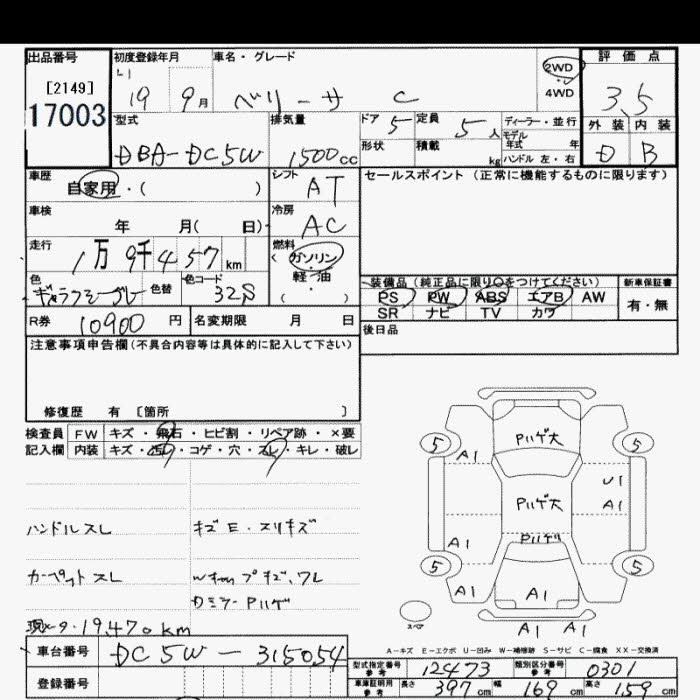 出品番号 初度登録年月 車名・グレード 2WD 4WD 評価点
[2149]
17003
19 9月 ベリーサ C 3.5
型式 排気量 ドア 5 定員 5人 ディーラー・並行 外装 内装
モデル年式 年
DBA-DC5W 1500cc 形状 積載 kg ハンドル 左・右 D B
車歴 シフト AT セールスポイント(正常に機能するものに限ります)
自家用・( )
車検 冷房 AC
年 月( 日)
走行 燃料
1万9千457km ガソリン・軽・油
( )
色 色替 色コード 装備品(純正品に限り○をつけてください) 新車保証書
32S PS PW ABS エアB AW 有・無
SR ナビ TV カワ
R券 10900円 名変期限 月 日 後日品
注意事項申告欄(不具合内容等は具体的に記入して下さい)
修復歴 有 [箇所 ]
検査員 FW キズ・飛石・ヒビ割・リペア跡・×要
記入欄 内装 キズ・汚レ・コゲ・穴・スレ・キレ・破レ
5 A1 Pハゲ大 5
U1
Pハゲ大 A1
ハンドルスレ キズE・スリキズ
A1 Pハゲ
5 5
カーペットスレ
A1 A1
DミラーPハゲ
スペア
現メータ・19,470km A1 A1
A-キズ E-エクボ U-凹み W-補修跡 S-サビ C-腐食 XX-交換済
車台番号 DC5W-315054
型式指定番号 参考 12473 類別区分番号 参考 0301
登録番号 車庫証明用 参考 長さ 397cm 幅 169cm 高さ 159cm